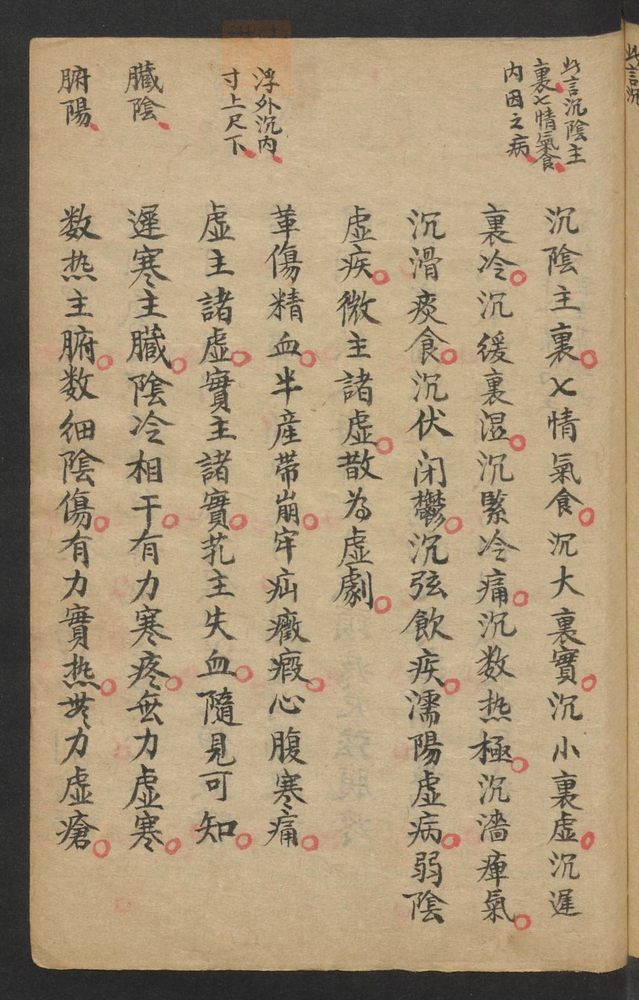 此言沉陰主
裏七情氣食
内因之病
沉陰主裏七情氣食沉大裏實沉小裏虛沉遲
裏冷沉緩裏湿沉緊冷痛沉数热極沉濇痺氣
沉滑痰食沉伏闭鬱沉弦飲疾濡陽虛病弱陰
虛疾微主諸虛散为虛劇
浮外沉内
寸上尺下
革傷精血半産帶崩牢疝癥瘕心腹寒痛
虛主諸虛實主諸實芤主失血隨見可知
臟陰
遲寒主臟陰冷相干有力寒疼無力虛寒
腑陽
数热主腑数細陰傷有力實热無力虛瘡
此言沉